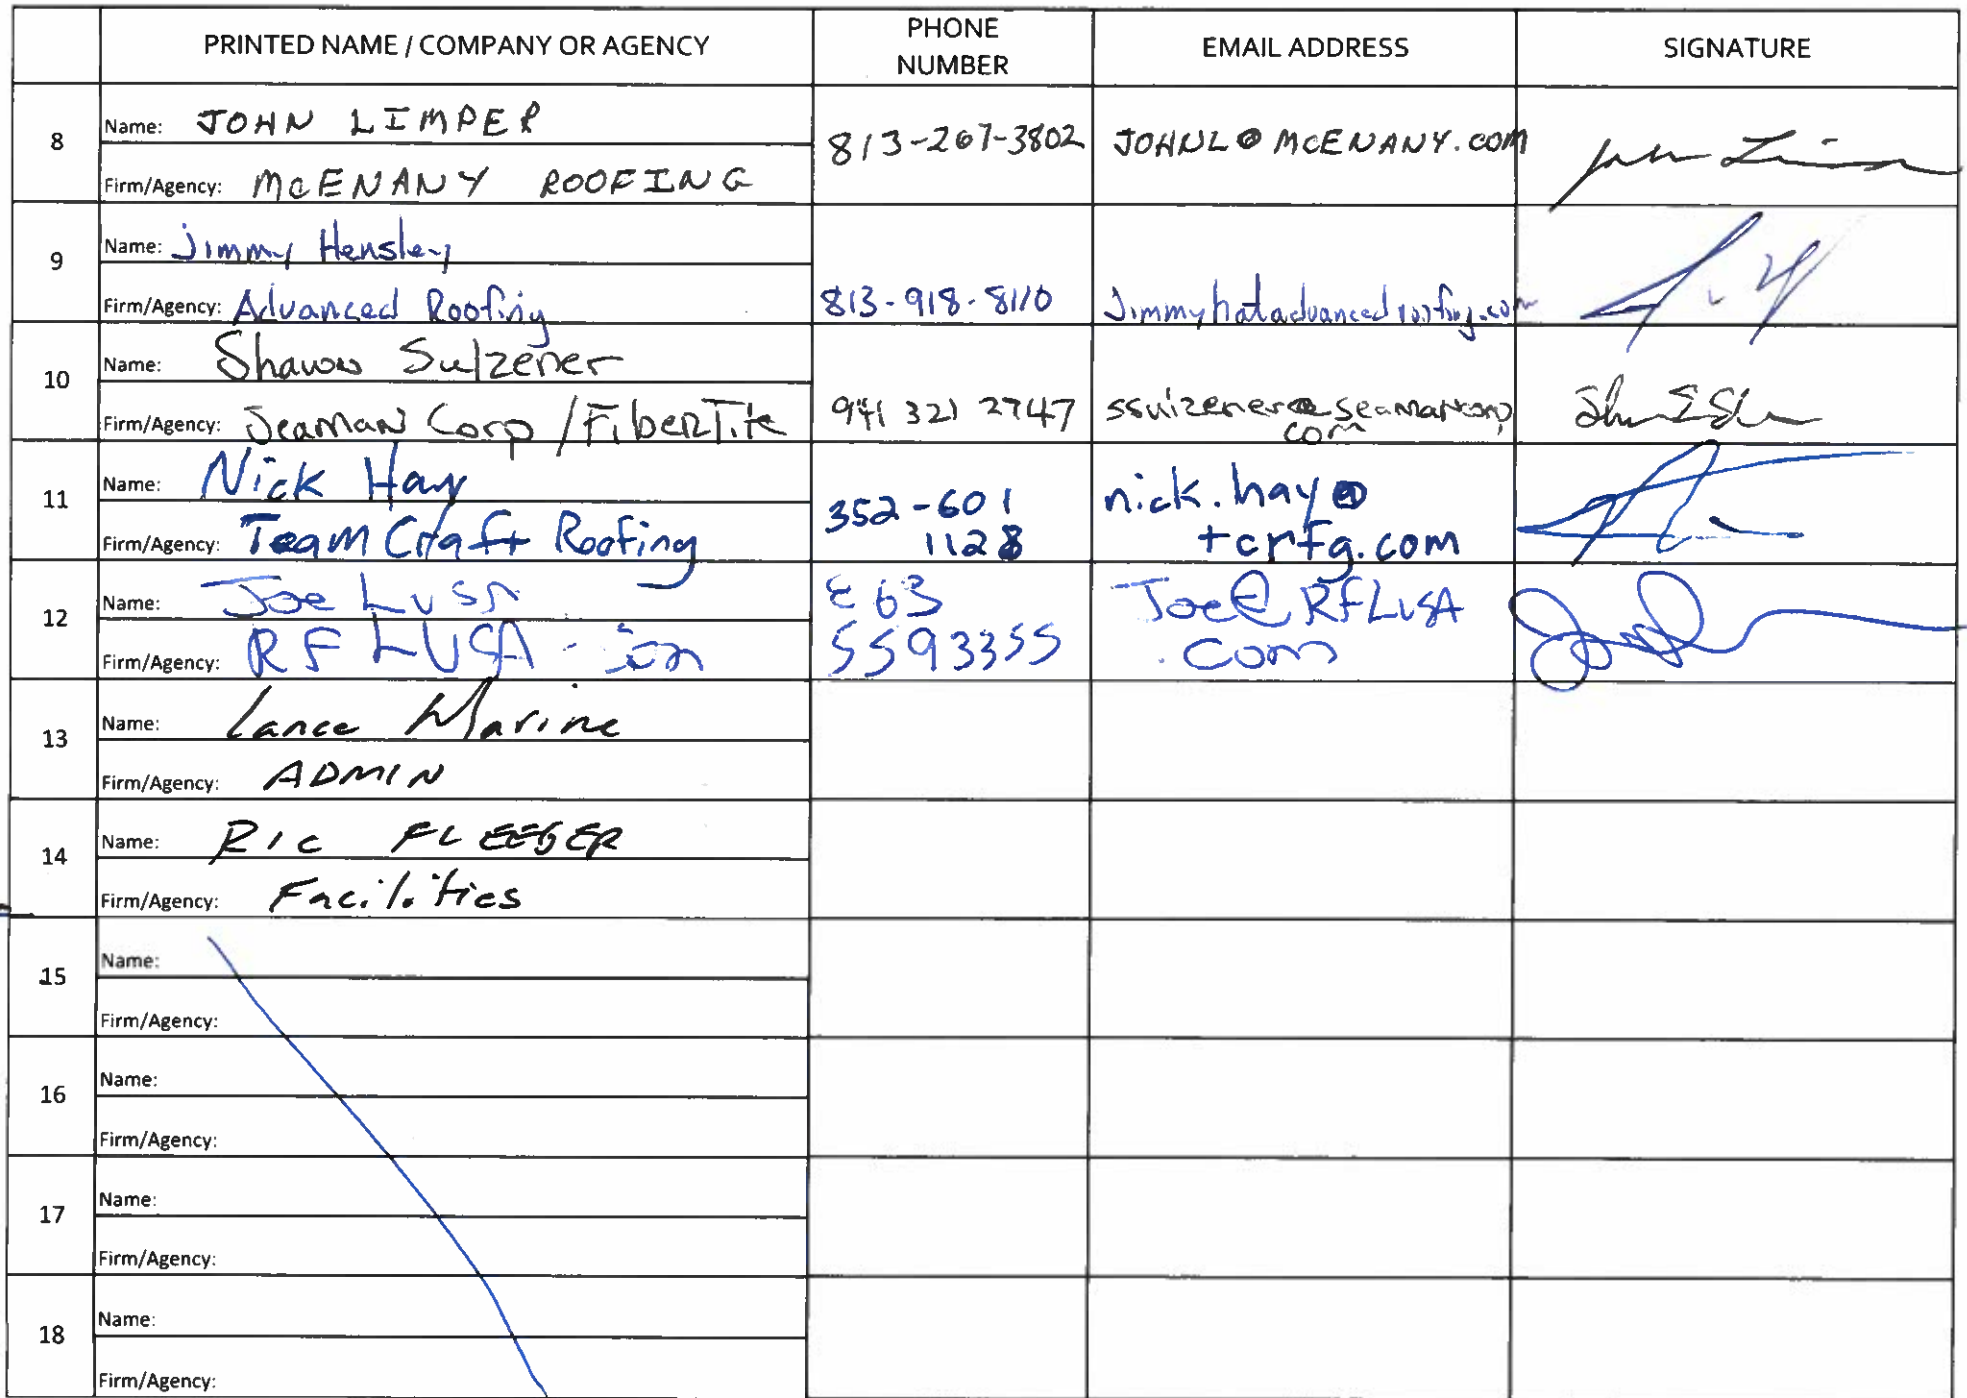 PRINTED NAME / COMPANY OR AGENCY
PHONE
NUMBER
EMAIL ADDRESS
SIGNATURE
8
Name: JOHN LIMPER
Firm/Agency: McENANY ROOFING
813-267-3802
JOHNL@MCENANY.COM
9
Name: Jimmy Hensley
Firm/Agency: Advanced Roofing
813-918-8110
Jimmyhatadvancedroofing.com
10
Name: Shawn Sulzener
Firm/Agency: Seaman Corp / FiberTite
941 321 2747
ssulzener@seamancorp
com
11
Name: Nick Hay
Firm/Agency: Team Craft Roofing
352-601
1128
nick.hay@
tcrfg.com
12
Name: Joe Lusa
Firm/Agency: RF LUSA
863
5593355
Joe@RFLUSA
.com
13
Name: Lance Marine
Firm/Agency: ADMIN
14
Name: RIC FLEEGER
Firm/Agency: Facilities
15
Name:
Firm/Agency:
16
Name:
Firm/Agency:
17
Name:
Firm/Agency:
18
Name:
Firm/Agency: